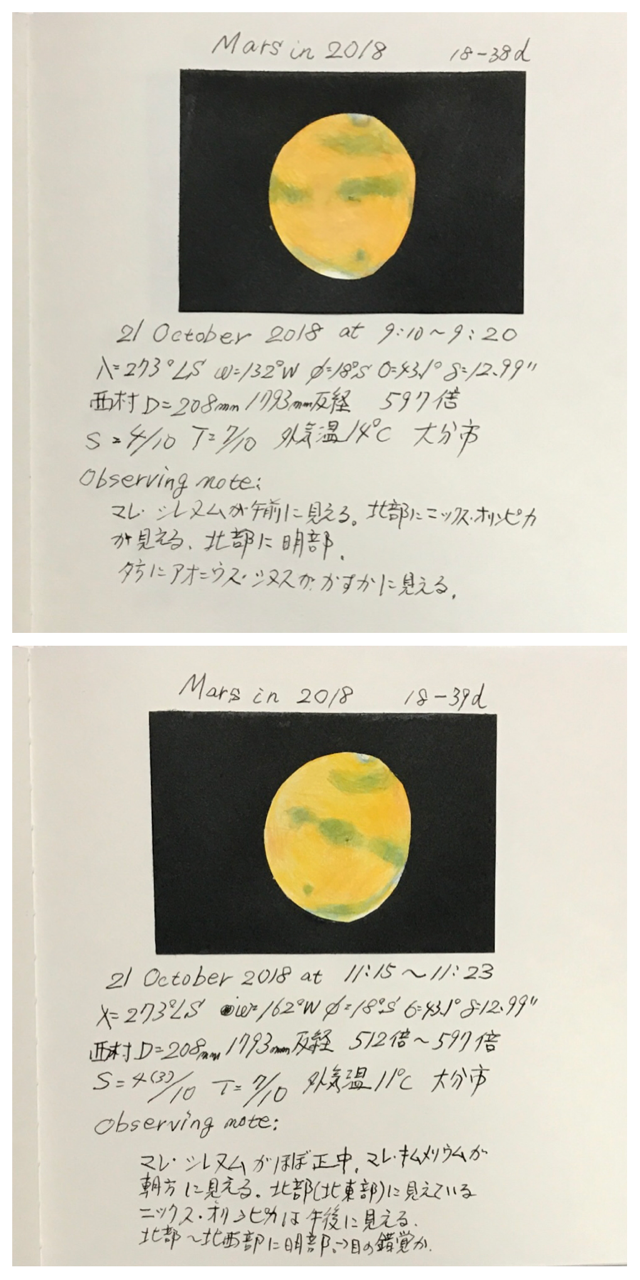 Mars in 2018 18-38d
21 October 2018 at 9:10~9:20
λ=273°LS ω=132°W φ=18°S δ=12.99"
西村 D=208mm 1793mm反経 597倍
S=4/10 T=7/10 外気温14℃ 大分市
Observing note:
マレ・シレヌムが午前に見える。北部にニックス・オリンピカ
が見える、北部に明部、
夕方にアオニウズ・シヌスが、かすかに見える。
Mars in 2018 18-39d
21 October 2018 at 11:15~11:23
λ=273°LS ω=162°W φ=18°S δ=12.99"
西村 D=208mm 1793mm反経 512倍~597倍
S=4(3)/10 T=7/10 外気温11℃ 大分市
Observing note:
マレ・シレヌムがほぼ正中、マレ・キムメリウムが
朝方に見える。北部(北東部)に見えている
ニックス・オリンピカは午後に見える。
北部~北西部に明部、→目の錯覚か.